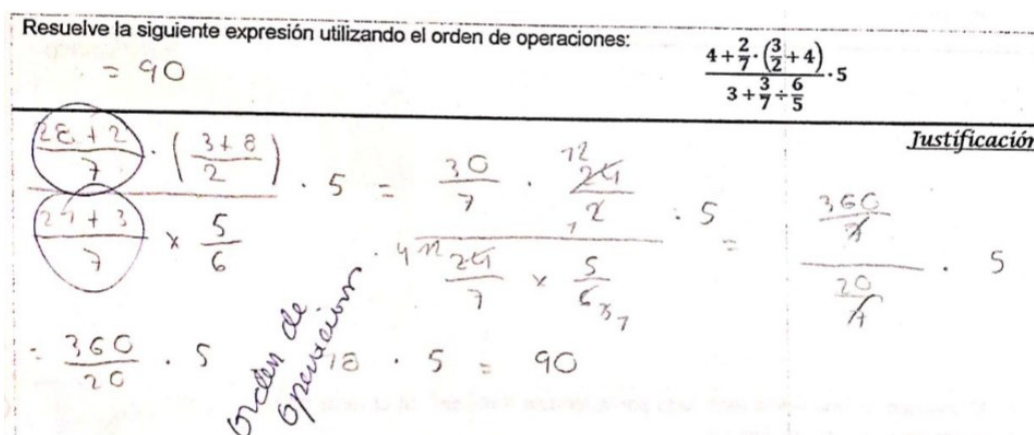 Resuelve la siguiente expresión utilizando el orden de operaciones:
(4 + 2/7 · (3/2 + 4)) / (3 + 3/7 ÷ 6/5) · 5
= 90
Justificación
((28 + 2)/7 · ((3 + 8)/2)) / ((21 + 3)/7 × 5/6) · 5 = (30/7 · 24/2) / (24/7 × 5/6) · 5 = (360/7) / (20/7) · 5
= 360/20 · 5
18 · 5 = 90
orden de
operaciones